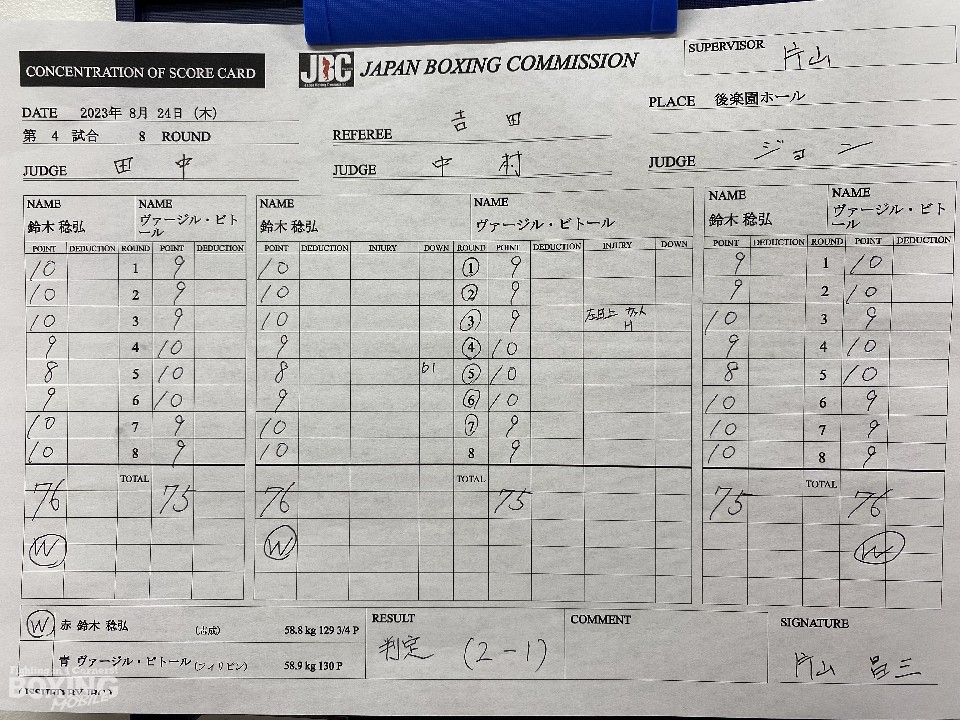 CONCENTRATION OF SCORE CARD
JBC JAPAN BOXING COMMISSION
SUPERVISOR 片山
DATE 2023年 8月 24日 (木)
PLACE 後楽園ホール
第 4 試合 8 ROUND
REFEREE 吉田
JUDGE 田中
JUDGE 中村
JUDGE ジョン
NAME NAME NAME NAME NAME NAME
鈴木 稔弘 ヴァージル・ビトール 鈴木 稔弘 ヴァージル・ビトール 鈴木 稔弘 ヴァージル・ビトール
POINT DEDUCTION ROUND POINT DEDUCTION POINT DEDUCTION INJURY DOWN ROUND POINT DEDUCTION INJURY DOWN POINT DEDUCTION ROUND POINT DEDUCTION
10 1 9 10 1 9 9 1 10
10 2 9 10 2 9 9 2 10
10 3 9 10 3 9 左目上 カット H 10 3 9
9 4 10 9 4 10 9 4 10
8 5 10 8 D1 5 10 8 5 10
9 6 10 9 6 10 10 6 9
10 7 9 10 7 9 10 7 9
10 8 9 10 8 9 10 8 9
TOTAL TOTAL TOTAL
76 75 76 75 75 76
W W W
W 赤 鈴木 稔弘 (志成) 58.8 kg 129 3/4 P
青 ヴァージル・ビトール (フィリピン) 58.9 kg 130 P
RESULT
判定 (2-1)
COMMENT
SIGNATURE
片山 昌三
ISSUED BY JBC
BOXING
MOBILE